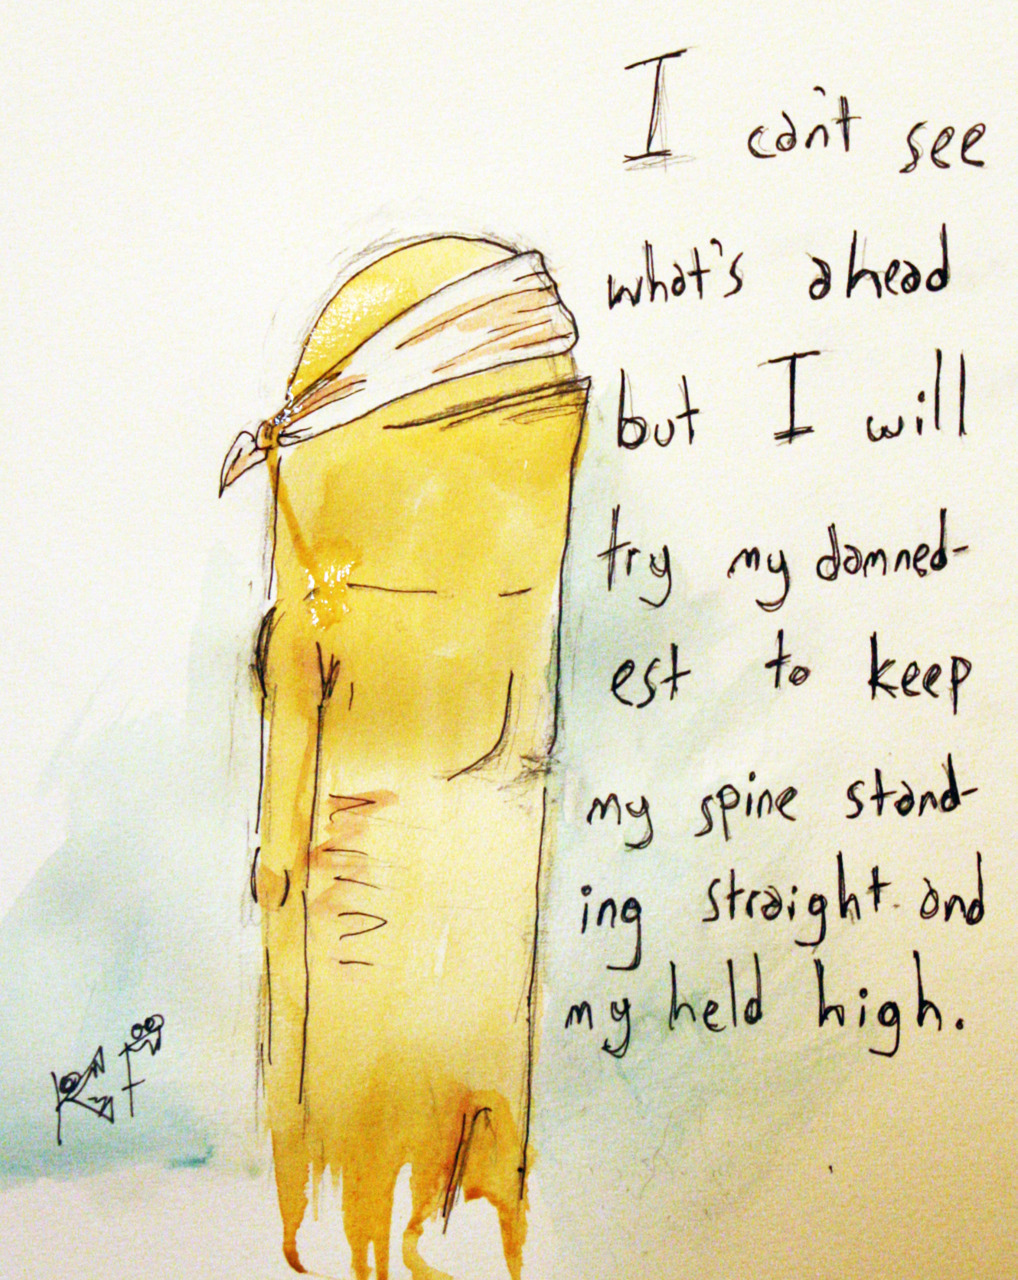 I can't see
what's ahead
but I will
try my damned-
est to keep
my spine stand-
ing straight and
my held high.